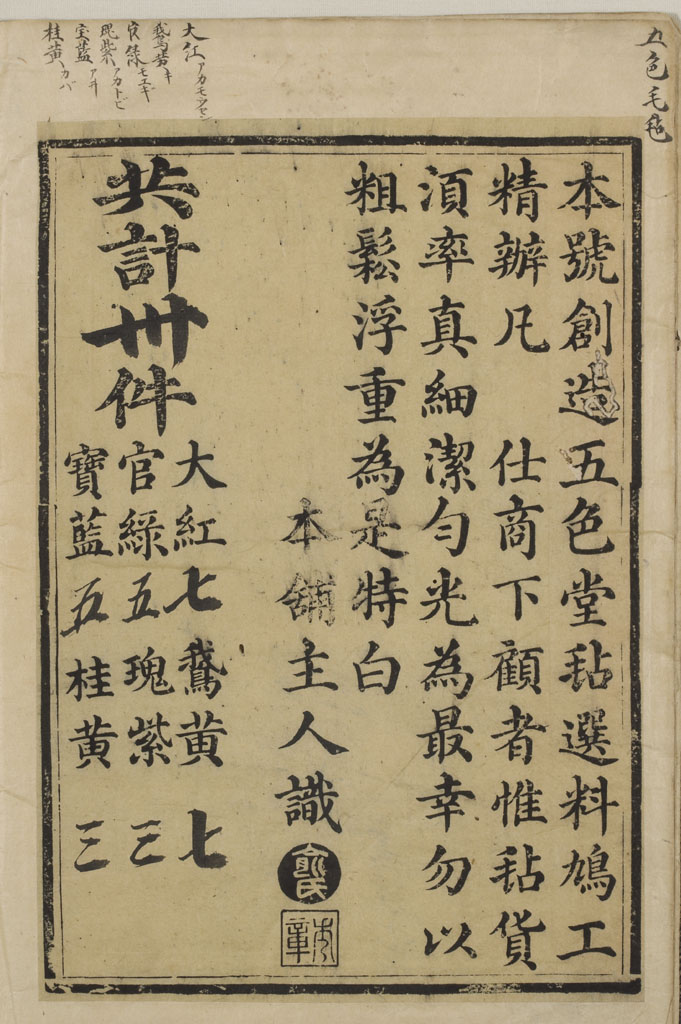 五色毛毡
大红 アカモウセン
鵞黄 キ
官緑 モエギ
瑰紫 アカトビ
宝藍 アヰ
桂黄 カバ
本號創造五色堂毡選料鳩工
精辦凡 仕商下顧者惟毡貨
湏率真細潔勻光為最幸勿以
粗鬆浮重為是特白
本舖主人識
俞氏
共計卅件
大紅七 鵞黄 七
官綠五 瑰紫 三
寶藍五 桂黄 三